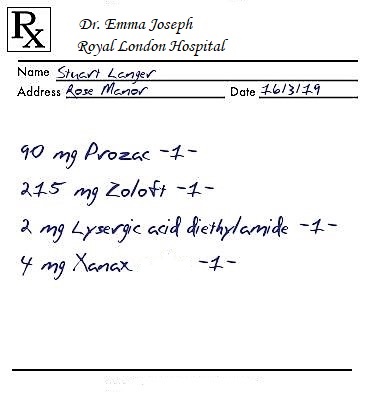 Rx Dr. Emma Joseph
Royal London Hospital
Name Stuart Langer
Address Rose Manor Date 16/3/19
90 mg Prozac -1-
215 mg Zoloft -1-
2 mg Lysergic acid diethylamide -1-
4 mg Xanax -1-